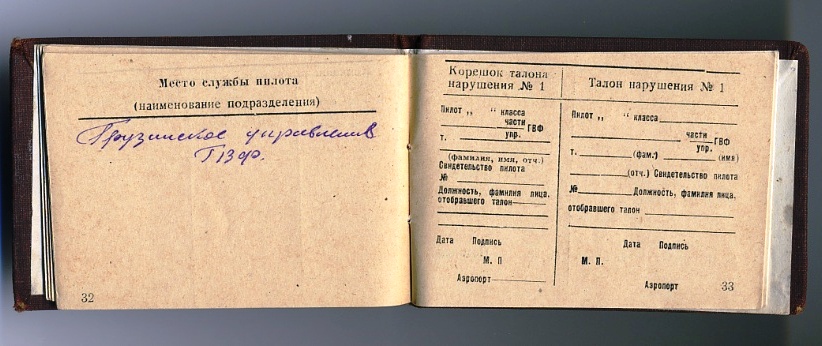 Место службы пилота
(наименование подразделения)
Грузинское управление
ГВФ.
32
Корешок талона
нарушения № 1
Пилот „ “ класса
части
упр. ГВФ
т.
(фамилия, имя, отч.)
Свидетельство пилота
№
Должность, фамилия лица,
отобравшего талон
Дата Подпись
М. П
Аэропорт
Талон нарушения № 1
Пилот „ “ класса
части
упр. ГВФ
т. (фам.) (имя)
(отч.) Свидетельство пилота
№ Должность, фамилия лица,
отобравшего талон
Дата Подпись
М. П.
Аэропорт 33